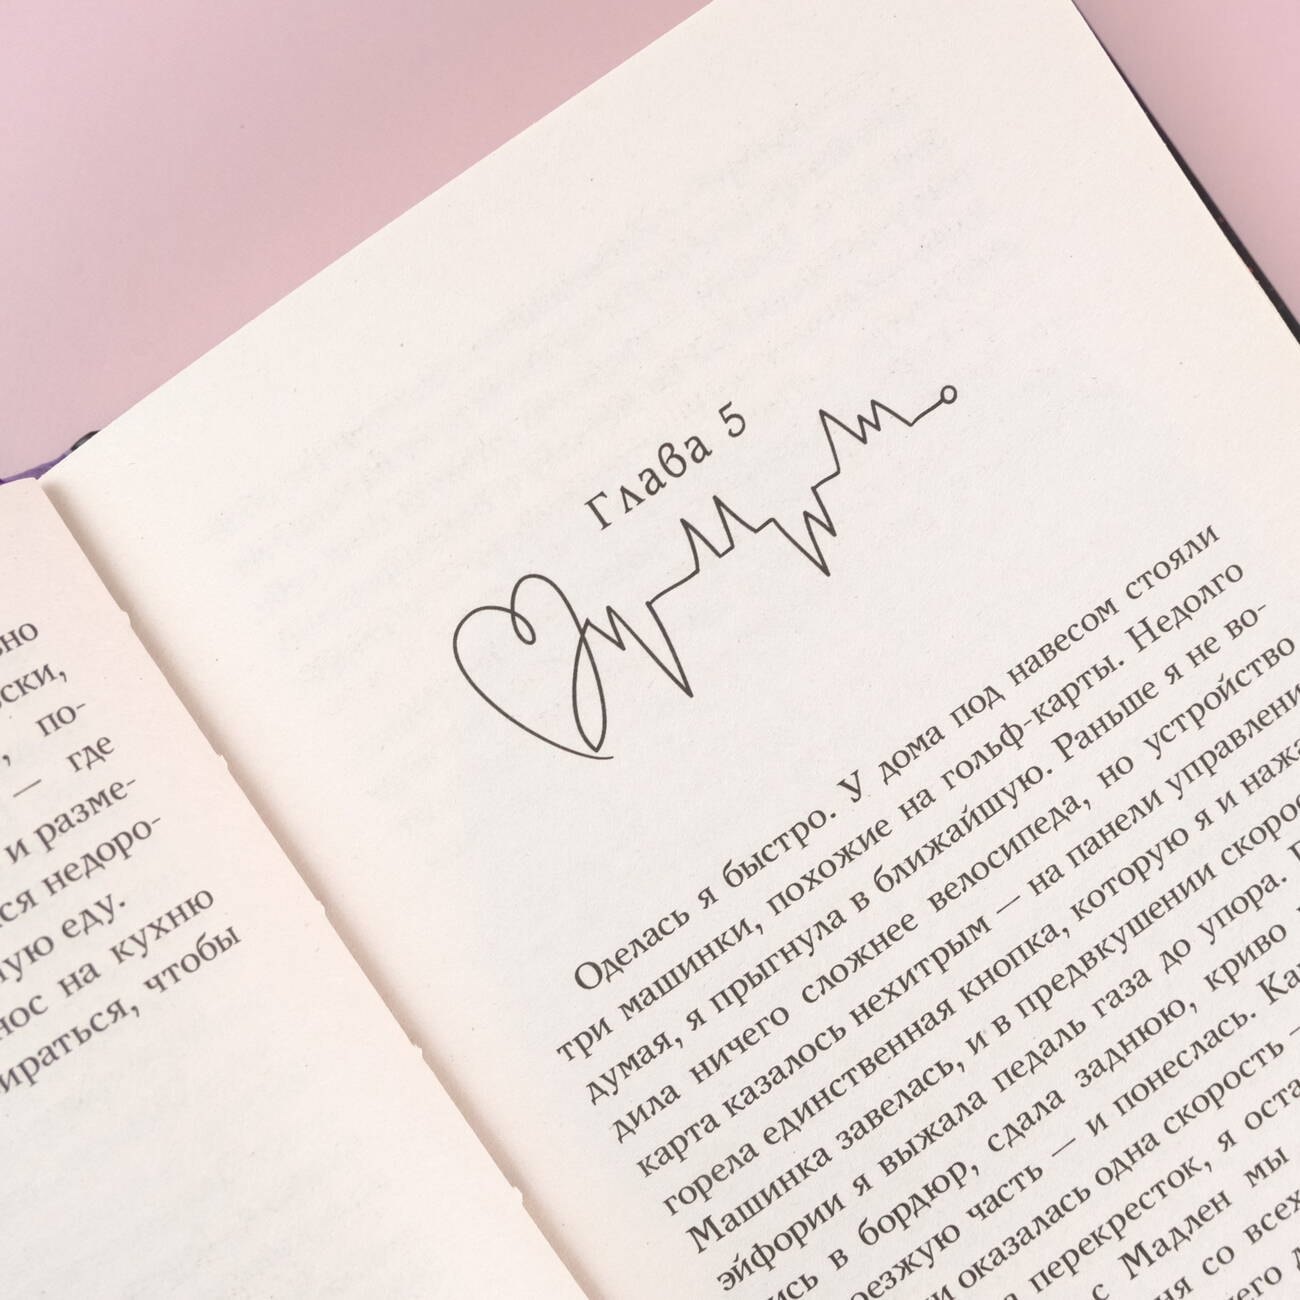 ски,
, по-
— где
и разме-
ся недоро-
ую еду.
нос на кухню
ираться, чтобы
Глава 5
Оделась я быстро. У дома под навесом стояли
три машинки, похожие на гольф-карты. Недолго
думая, я прыгнула в ближайшую. Раньше я не во-
дила ничего сложнее велосипеда, но устройство
карта казалось нехитрым — на панели управлени
горела единственная кнопка, которую я и нажа
Машинка завелась, и в предвкушении скорос
эйфории я выжала педаль газа до упора.
ись в бордюр, сдала заднюю, криво
оезжую часть — и понеслась. Ка
и оказалась одна скорость —
перекресток, я оста
с Мадлен мы
ня со всех
его